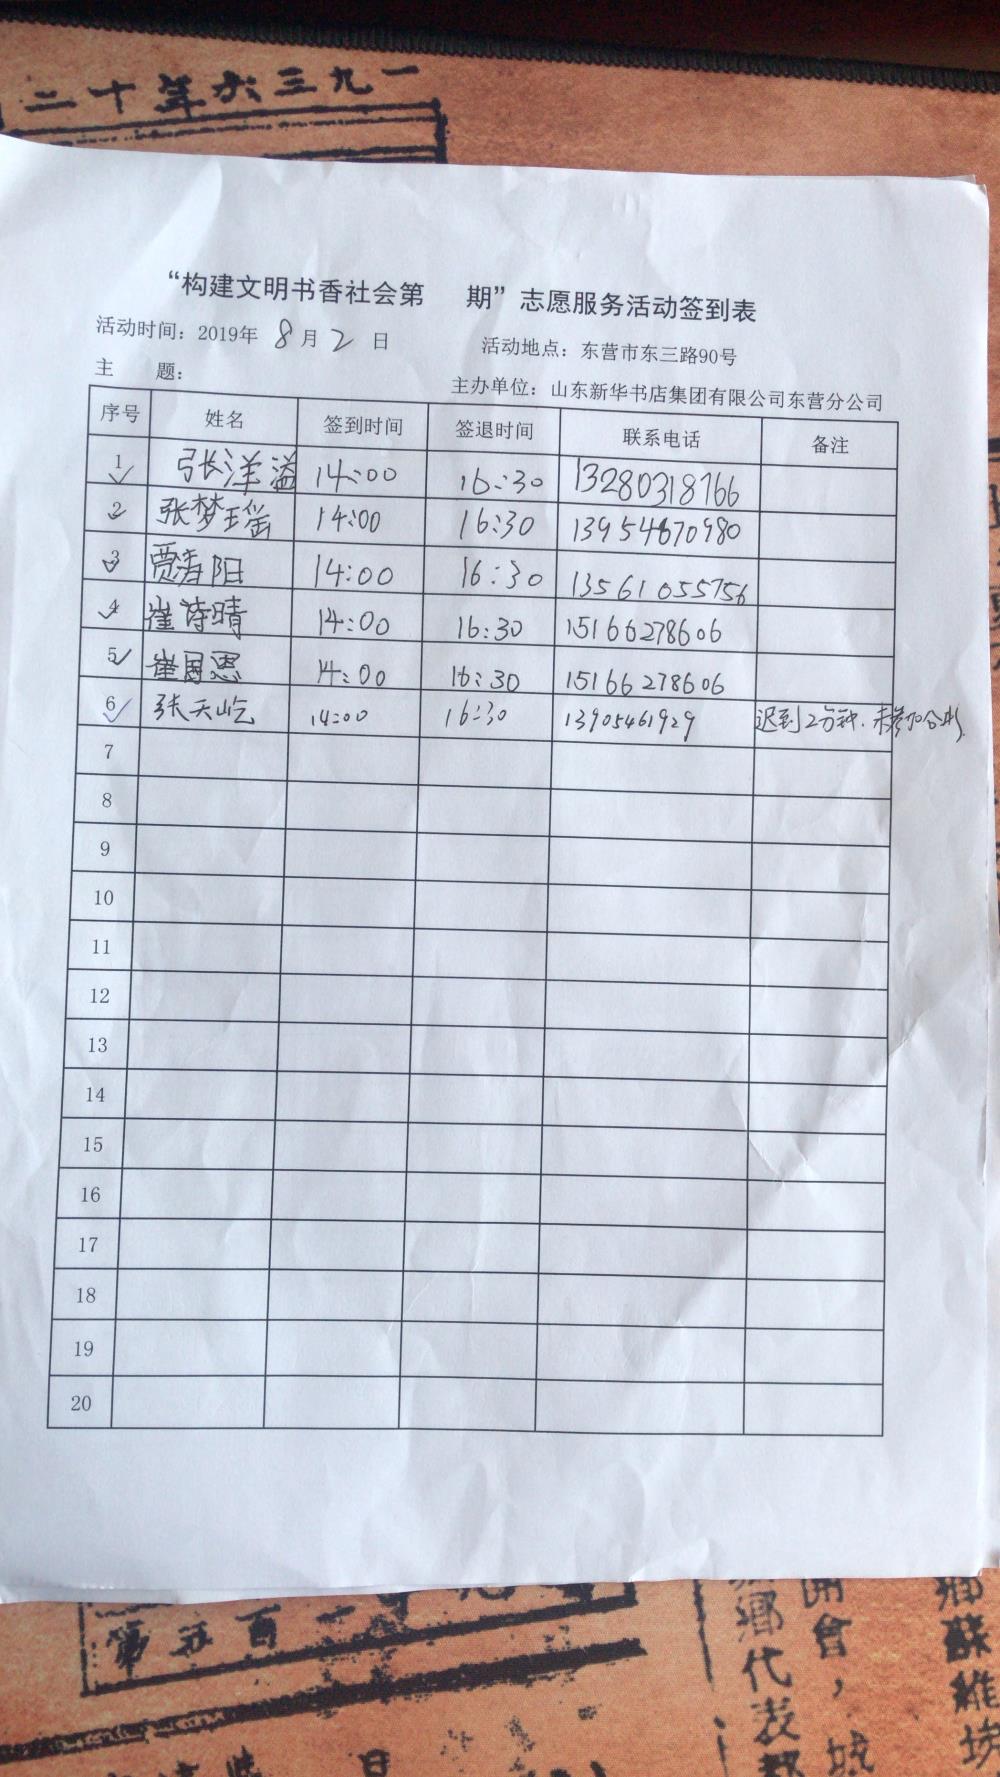 一九三六年十二
“构建文明书香社会第 期”志愿服务活动签到表
活动时间：2019年 8 月 2 日 活动地点：东营市东三路90号
主 题： 主办单位：山东新华书店集团有限公司东营分公司
序号 姓名 签到时间 签退时间 联系电话 备注
1 张洋溢 14:00 16:30 13280318766
2 张梦瑶 14:00 16:30 13954670980
3 贾春阳 14:00 16:30 13561055756
4 崔诗晴 14:00 16:30 15166278606
5 崔恩 14:00 16:30 15166278606
6 张天屹 14:00 16:30 13905461929 迟到2分钟.未参加合影.
7
8
9
10
11
12
13
14
15
16
17
18
19
20
第五百二
乡代表
开会，城
乡苏维埃